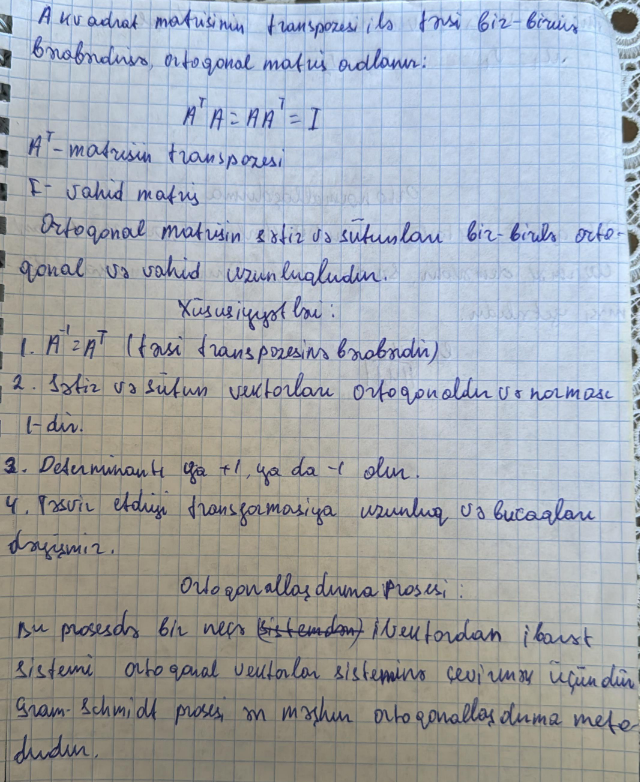 A kvadrat matrisinin transpozesi ilə tərsi bir-birinə
bərabərdirsə, ortogonal matris adlanır:
AᵀA = AAᵀ = I
Aᵀ - matrisin transpozesi
I - vahid matris
Ortogonal matrisin sətir və sütunları bir-birilə orto-
qonal və vahid uzunluqludur.
Xüsusiyyətləri:
1. A⁻¹ = Aᵀ (tərsi transpozesinə bərabərdir)
2. Sətir və sütun vektorları ortoqonaldır və norması
1-dir.
3. Determinantı ya +1, ya da -1 olur.
4. Təsvir etdiyi transformasiya uzunluq və bucaqları
dəyişmir.
Ortoqonallaşdırma prosesi:
Bu prosesdə bir neçə (sistemdən) vektordan ibarət
sistemi ortoqonal vektorlar sisteminə çevirmək üçündür
Gram-Schmidt prosesi ən məşhur ortoqonallaşdırma meto-
dudur.